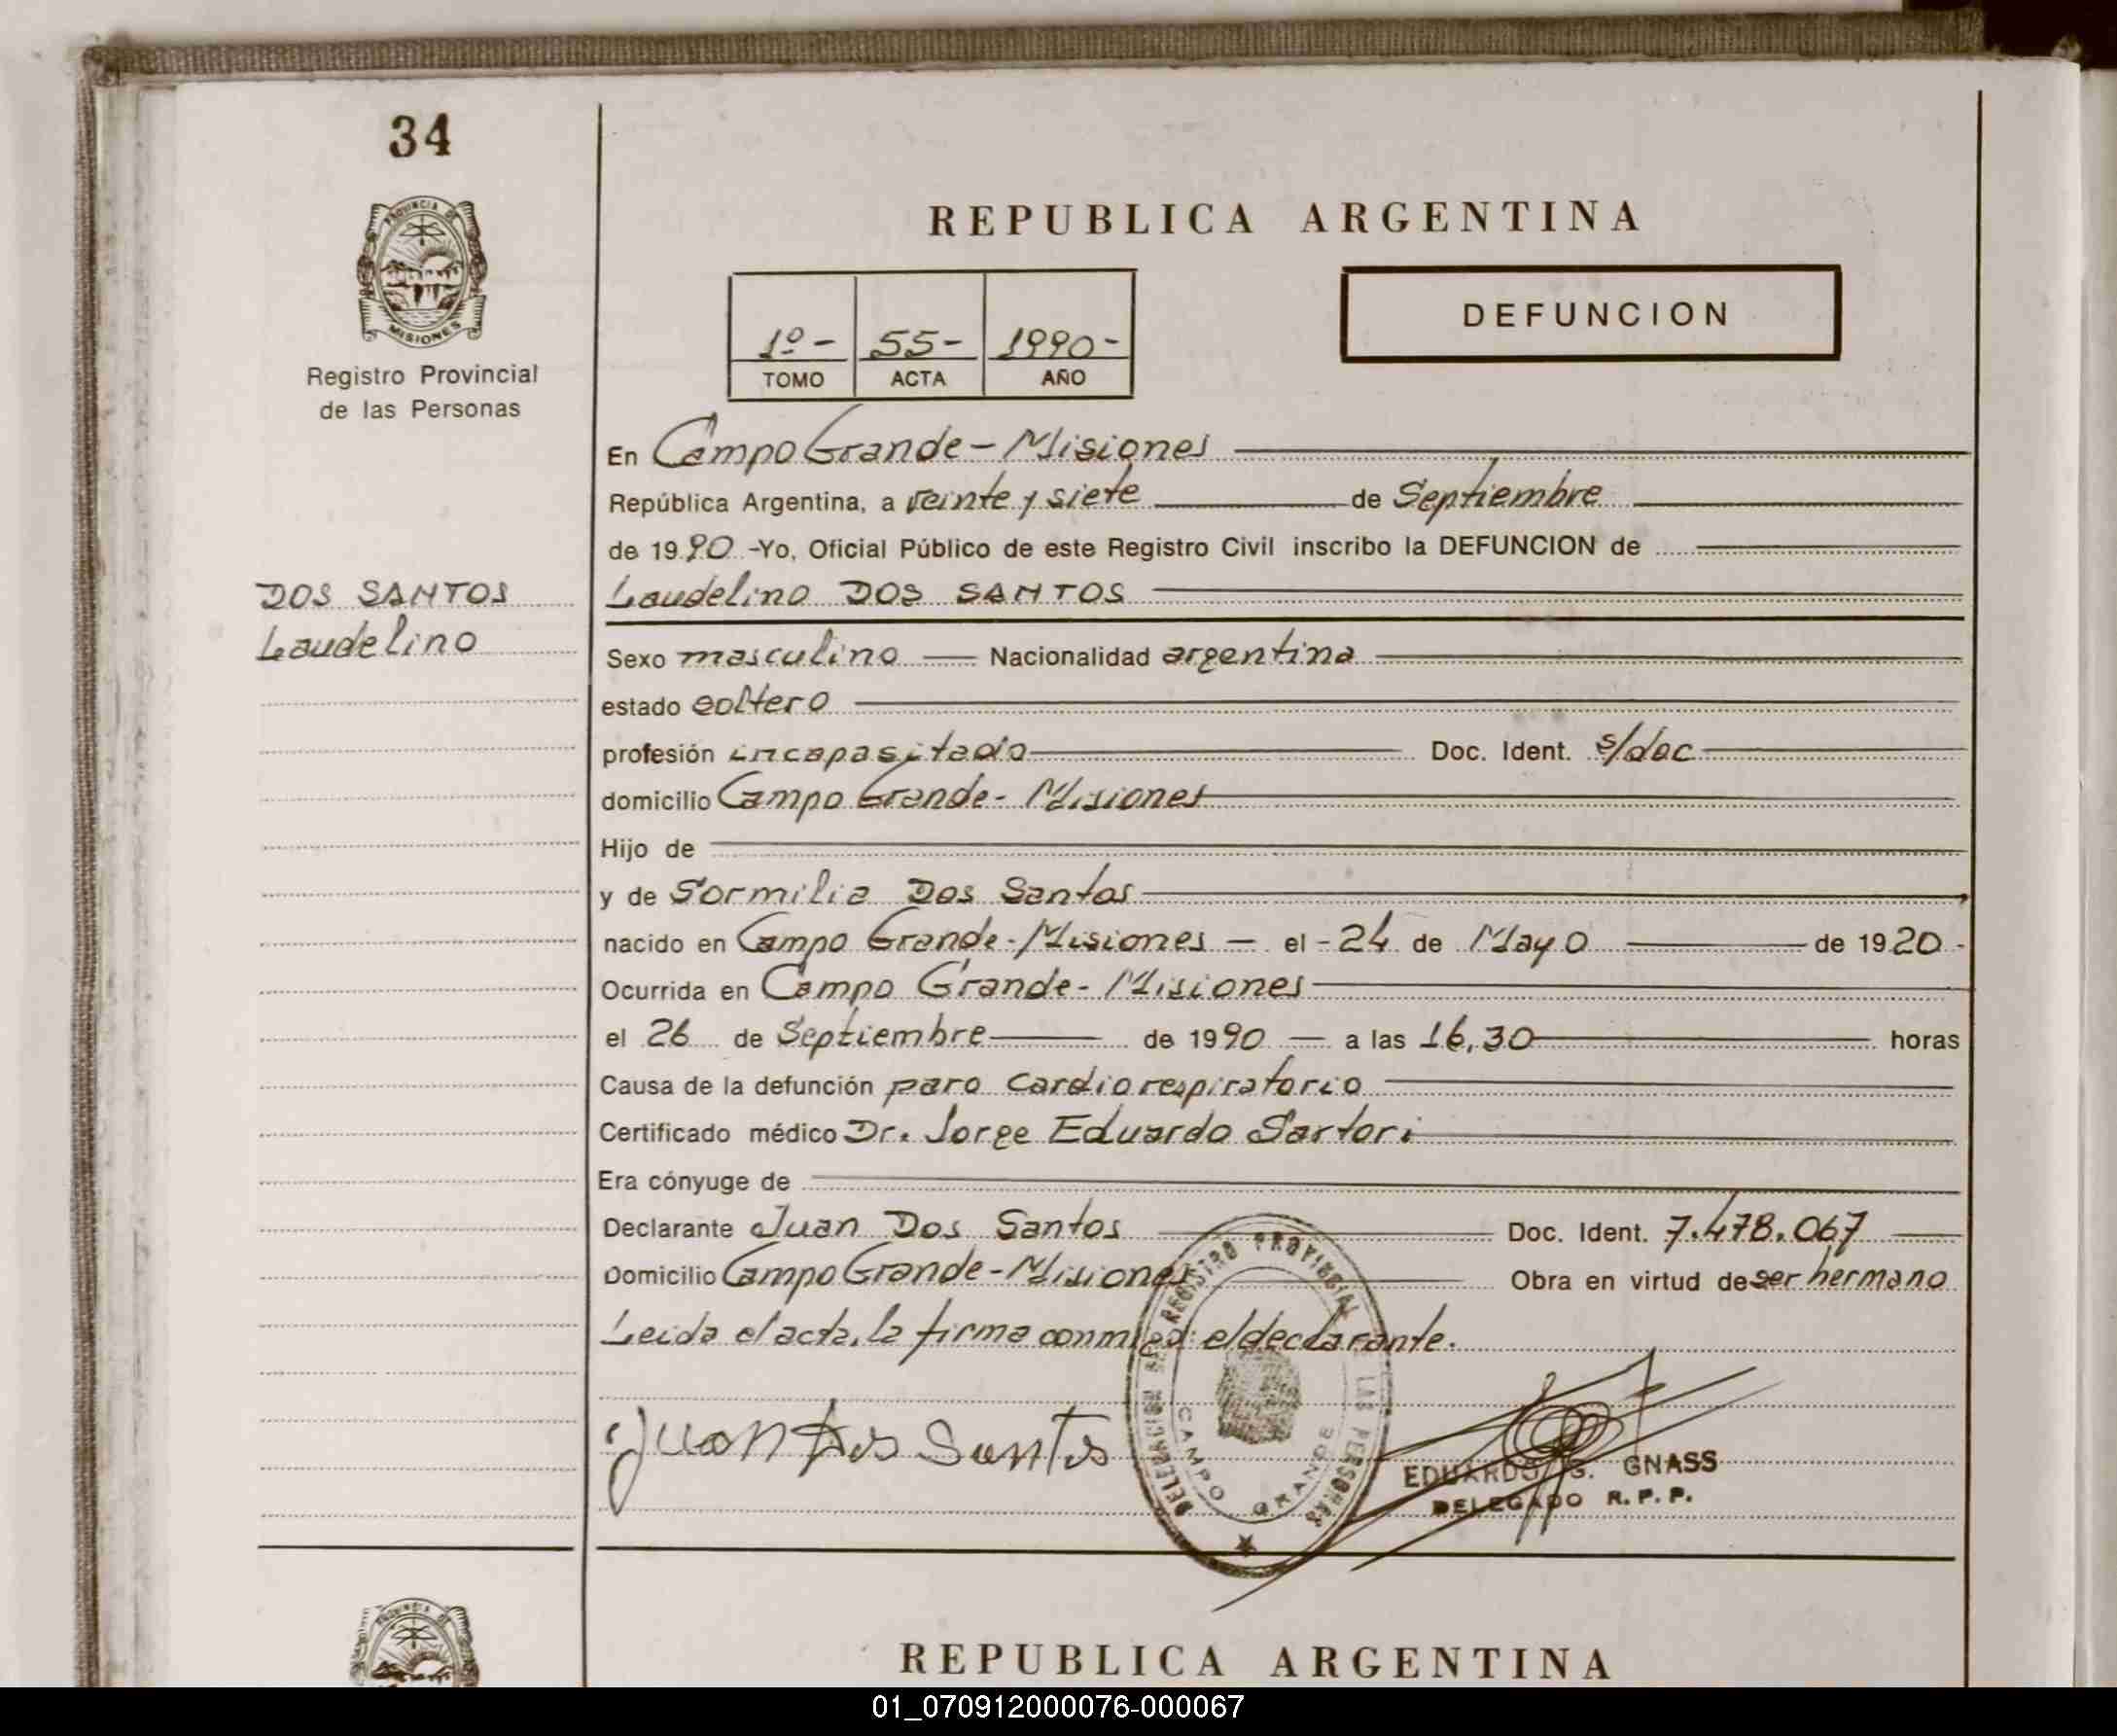 34
PROVINCIA DE
MISIONES
Registro Provincial
de las Personas
DOS SANTOS
Laudelino
REPUBLICA ARGENTINA
1º - 55 - 1990 -
TOMO ACTA AÑO
DEFUNCION
En Campo Grande - Misiones
República Argentina, a veinte y siete de Septiembre
de 1990 -Yo, Oficial Público de este Registro Civil inscribo la DEFUNCION de
Laudelino DOS SANTOS
Sexo masculino Nacionalidad argentina
estado soltero
profesión incapasitado Doc. Ident. s/doc
domicilio Campo Grande - Misiones
Hijo de
y de Sormilia Dos Santos
nacido en Campo Grande - Misiones - el - 24 de Mayo de 1920 -
Ocurrida en Campo Grande - Misiones
el 26 de Septiembre de 1990 - a las 16,30 horas
Causa de la defunción paro cardiorespiratorio
Certificado médico Dr. Jorge Eduardo Sartori
Era cónyuge de
Declarante Juan Dos Santos Doc. Ident. 7.478.067
Domicilio Campo Grande - Misiones Obra en virtud de ser hermano
Leida el acta, la firma conmigo: el declarante.
Juan Dos Santos
DELEGACION DEL REGISTRO PROVINCIAL DE LAS PERSONAS
CAMPO GRANDE
EDUARDO G. GNASS
DELEGADO R. P. P.
PROVINCIA DE
REPUBLICA ARGENTINA
01_070912000076-000067